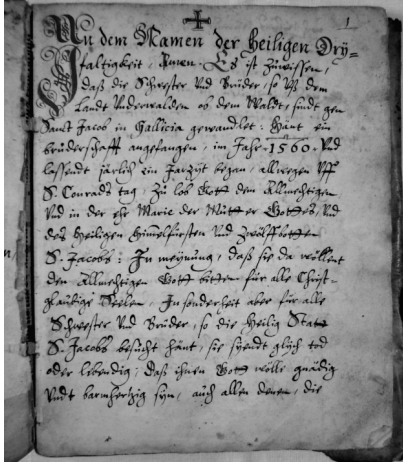 1
In dem Namen der Heiligen Dry=
faltigkeit, Amen. Es ist zůwissen,
daß die Schwester Vnd Brüder, so Vß dem
Landt Vnderwalden ob dem Waldt, sindt gen
Sanct Jacob in Gallicia gewandlet: Hänt ein
brůderschafft angefangen, im Jahr 1560. Vnd
lassendt järlich ein Jarzyt began, allwegen Vff
S. Conrads tag, Zů lob Gott dem Allmechtigen
Vnd in der ehr Marie der Můtter Gottes, Vnd
des heiligen Himelfürsten Vnd Zwölffbotten
S. Jacobs: In meynung, daß sie da wöllent
den Allmechtigen Gott bitten für alle Christ-
gläubige Seelen, In sonderheit aber für alle
Schwester Vnd Brüder, so die heilig Statt
S. Jacobs besücht hänt, sie syendt glych tod
oder lebendig; daß ihnen Gott wölle gnädig
Vndt barmhertzig syn, auch allen denen, die